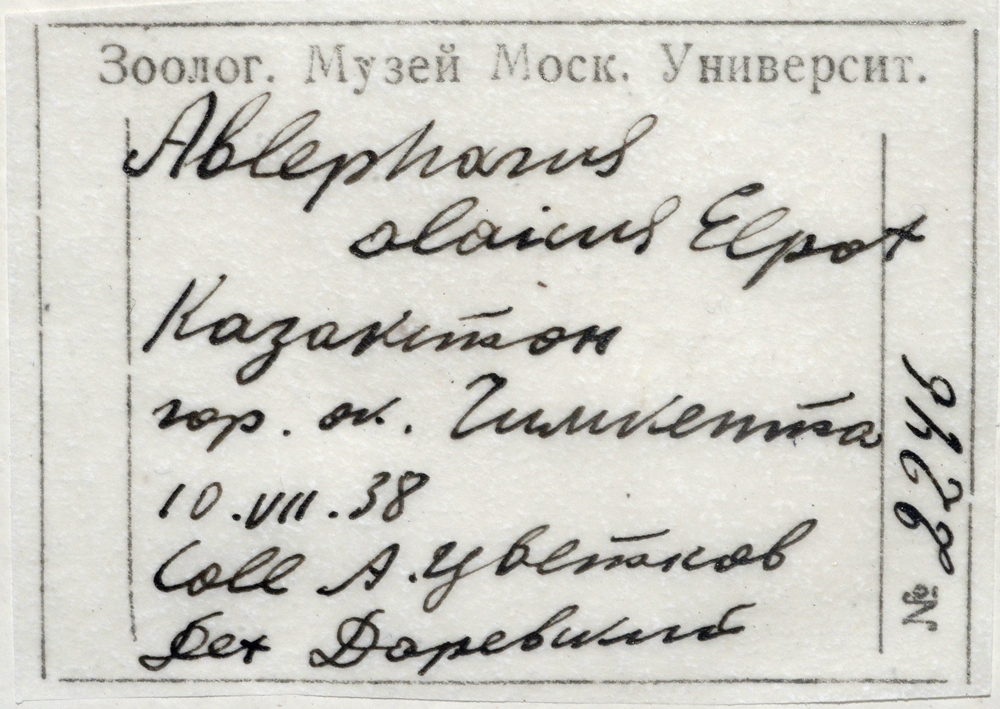 Зоолог. Музей Моск. Университ.
Ablepharus
alaicus Elpat
Казакстан
гор. ок. Чимкента
10.VII.38
Coll А. Цветков
Det Даревский
№ 2246